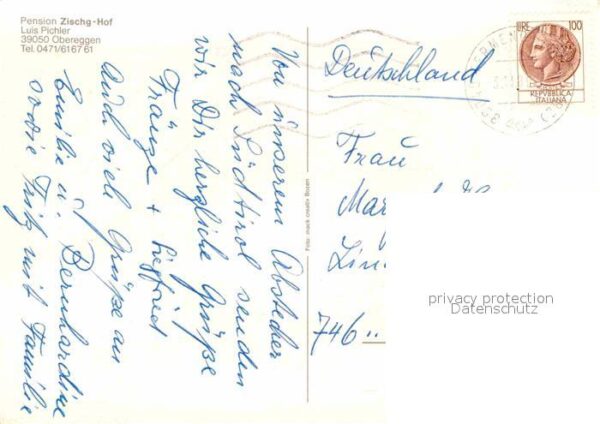 Pension Zischg-Hof
Luis Pichler
39050 Obereggen
Tel. 0471/616761
Von unserem Abstecher
nach Südtirol senden
wir Dir herzliche Grüße
Franze + Siegfried
Auch viele Grüße an
Emilie u. Bernhardine
sowie Fritz mit Familie
Foto: mack creativ Bozen
Deutschland
100
REPVBBLICA
ITALIANA
Frau
746
privacy protection
Datenschutz